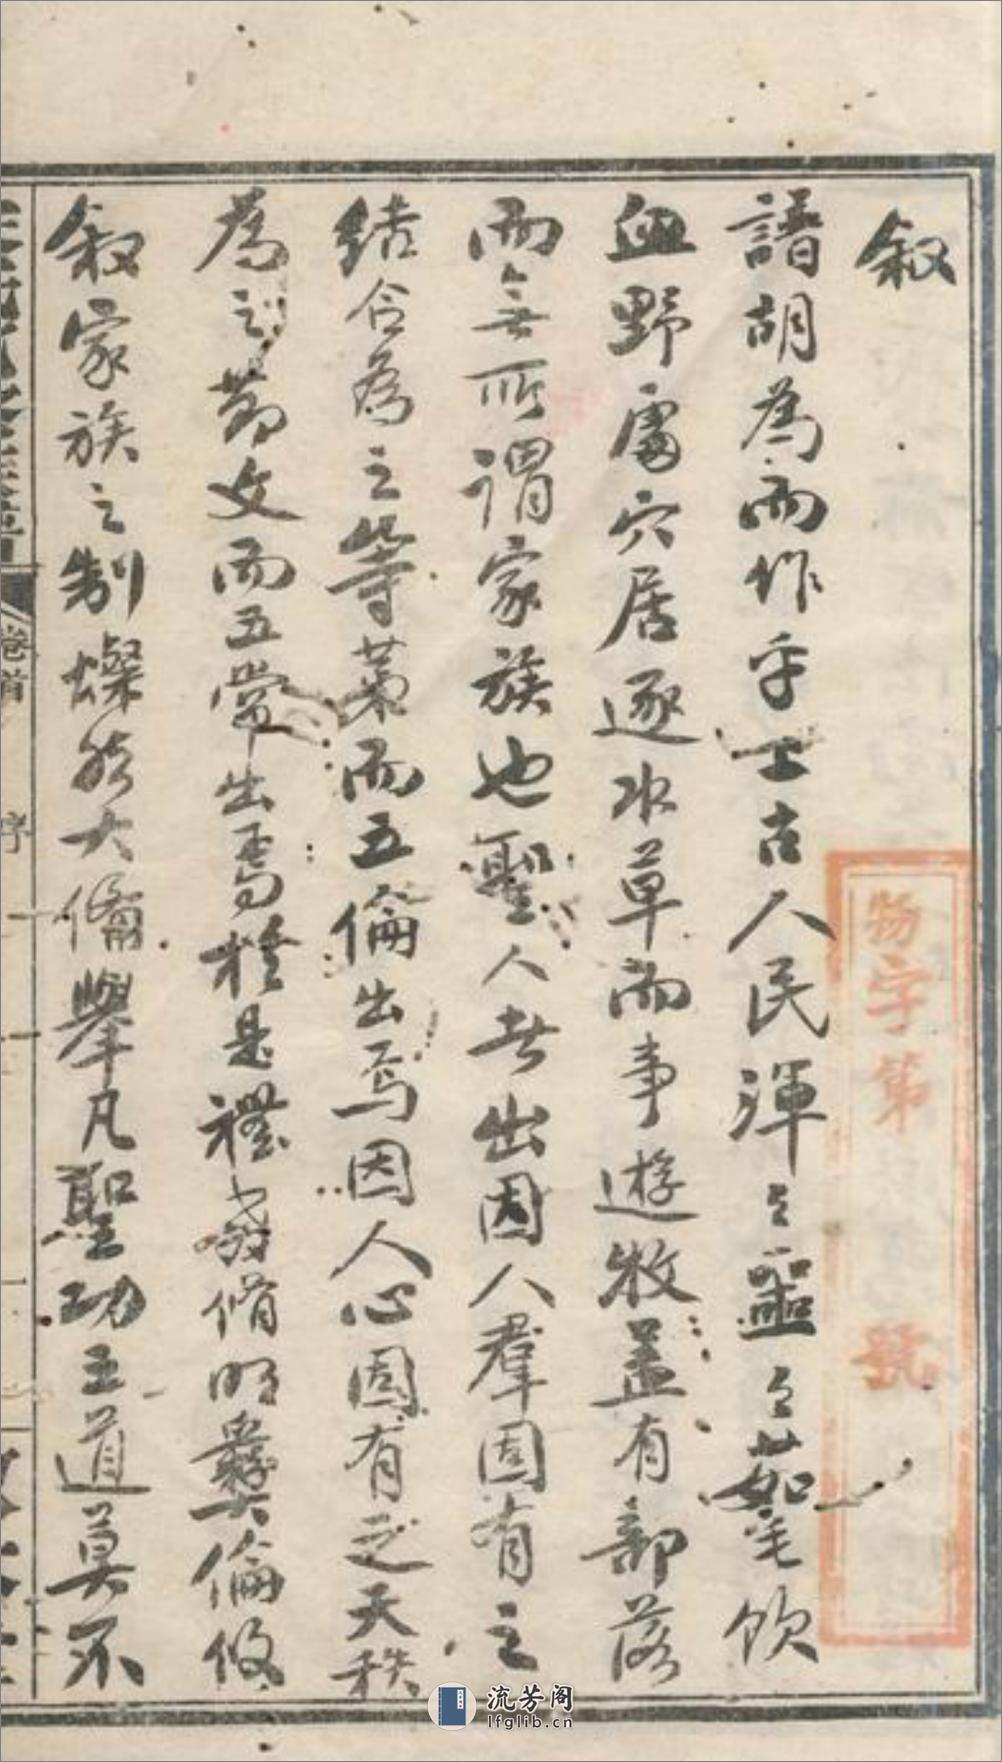 叙
譜胡為而作乎上古人民渾々噩々茹毛飲
血野處穴居逐水草而事遊牧蓋有部落
而無所謂家族也聖人者出因人羣固有之
結合為之等第而五倫出焉因人心固有之天秩
為之節文而五常出焉於是禮教脩明彝倫攸
叙家族之制燦然大備舉凡聖功王道莫不
卷首
序
一
物字第
號
流芳阁
lfglib.cn